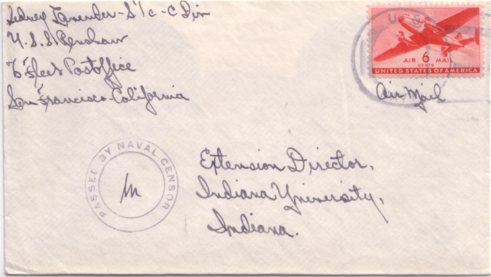 Sidney Lavender - S 1/c - C Div
U.S.S. Renshaw
℅ Fleet Postoffice
San Francisco California
U.S.
AIR 6 MAIL
CENTS
UNITED STATES OF AMERICA
Air Mail
PASSED BY NAVAL CENSOR
Extension Director,
Indiana University,
Indiana.